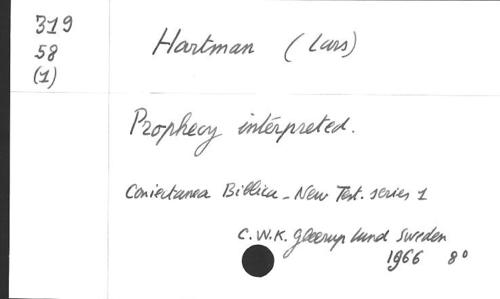 319
58
(1)
Hartman (Lars)
Prophecy interpreted.
Coniectanea Biblica - New Test. series 1
C.W.K. Gleerup Lund Sweden
1966 8°